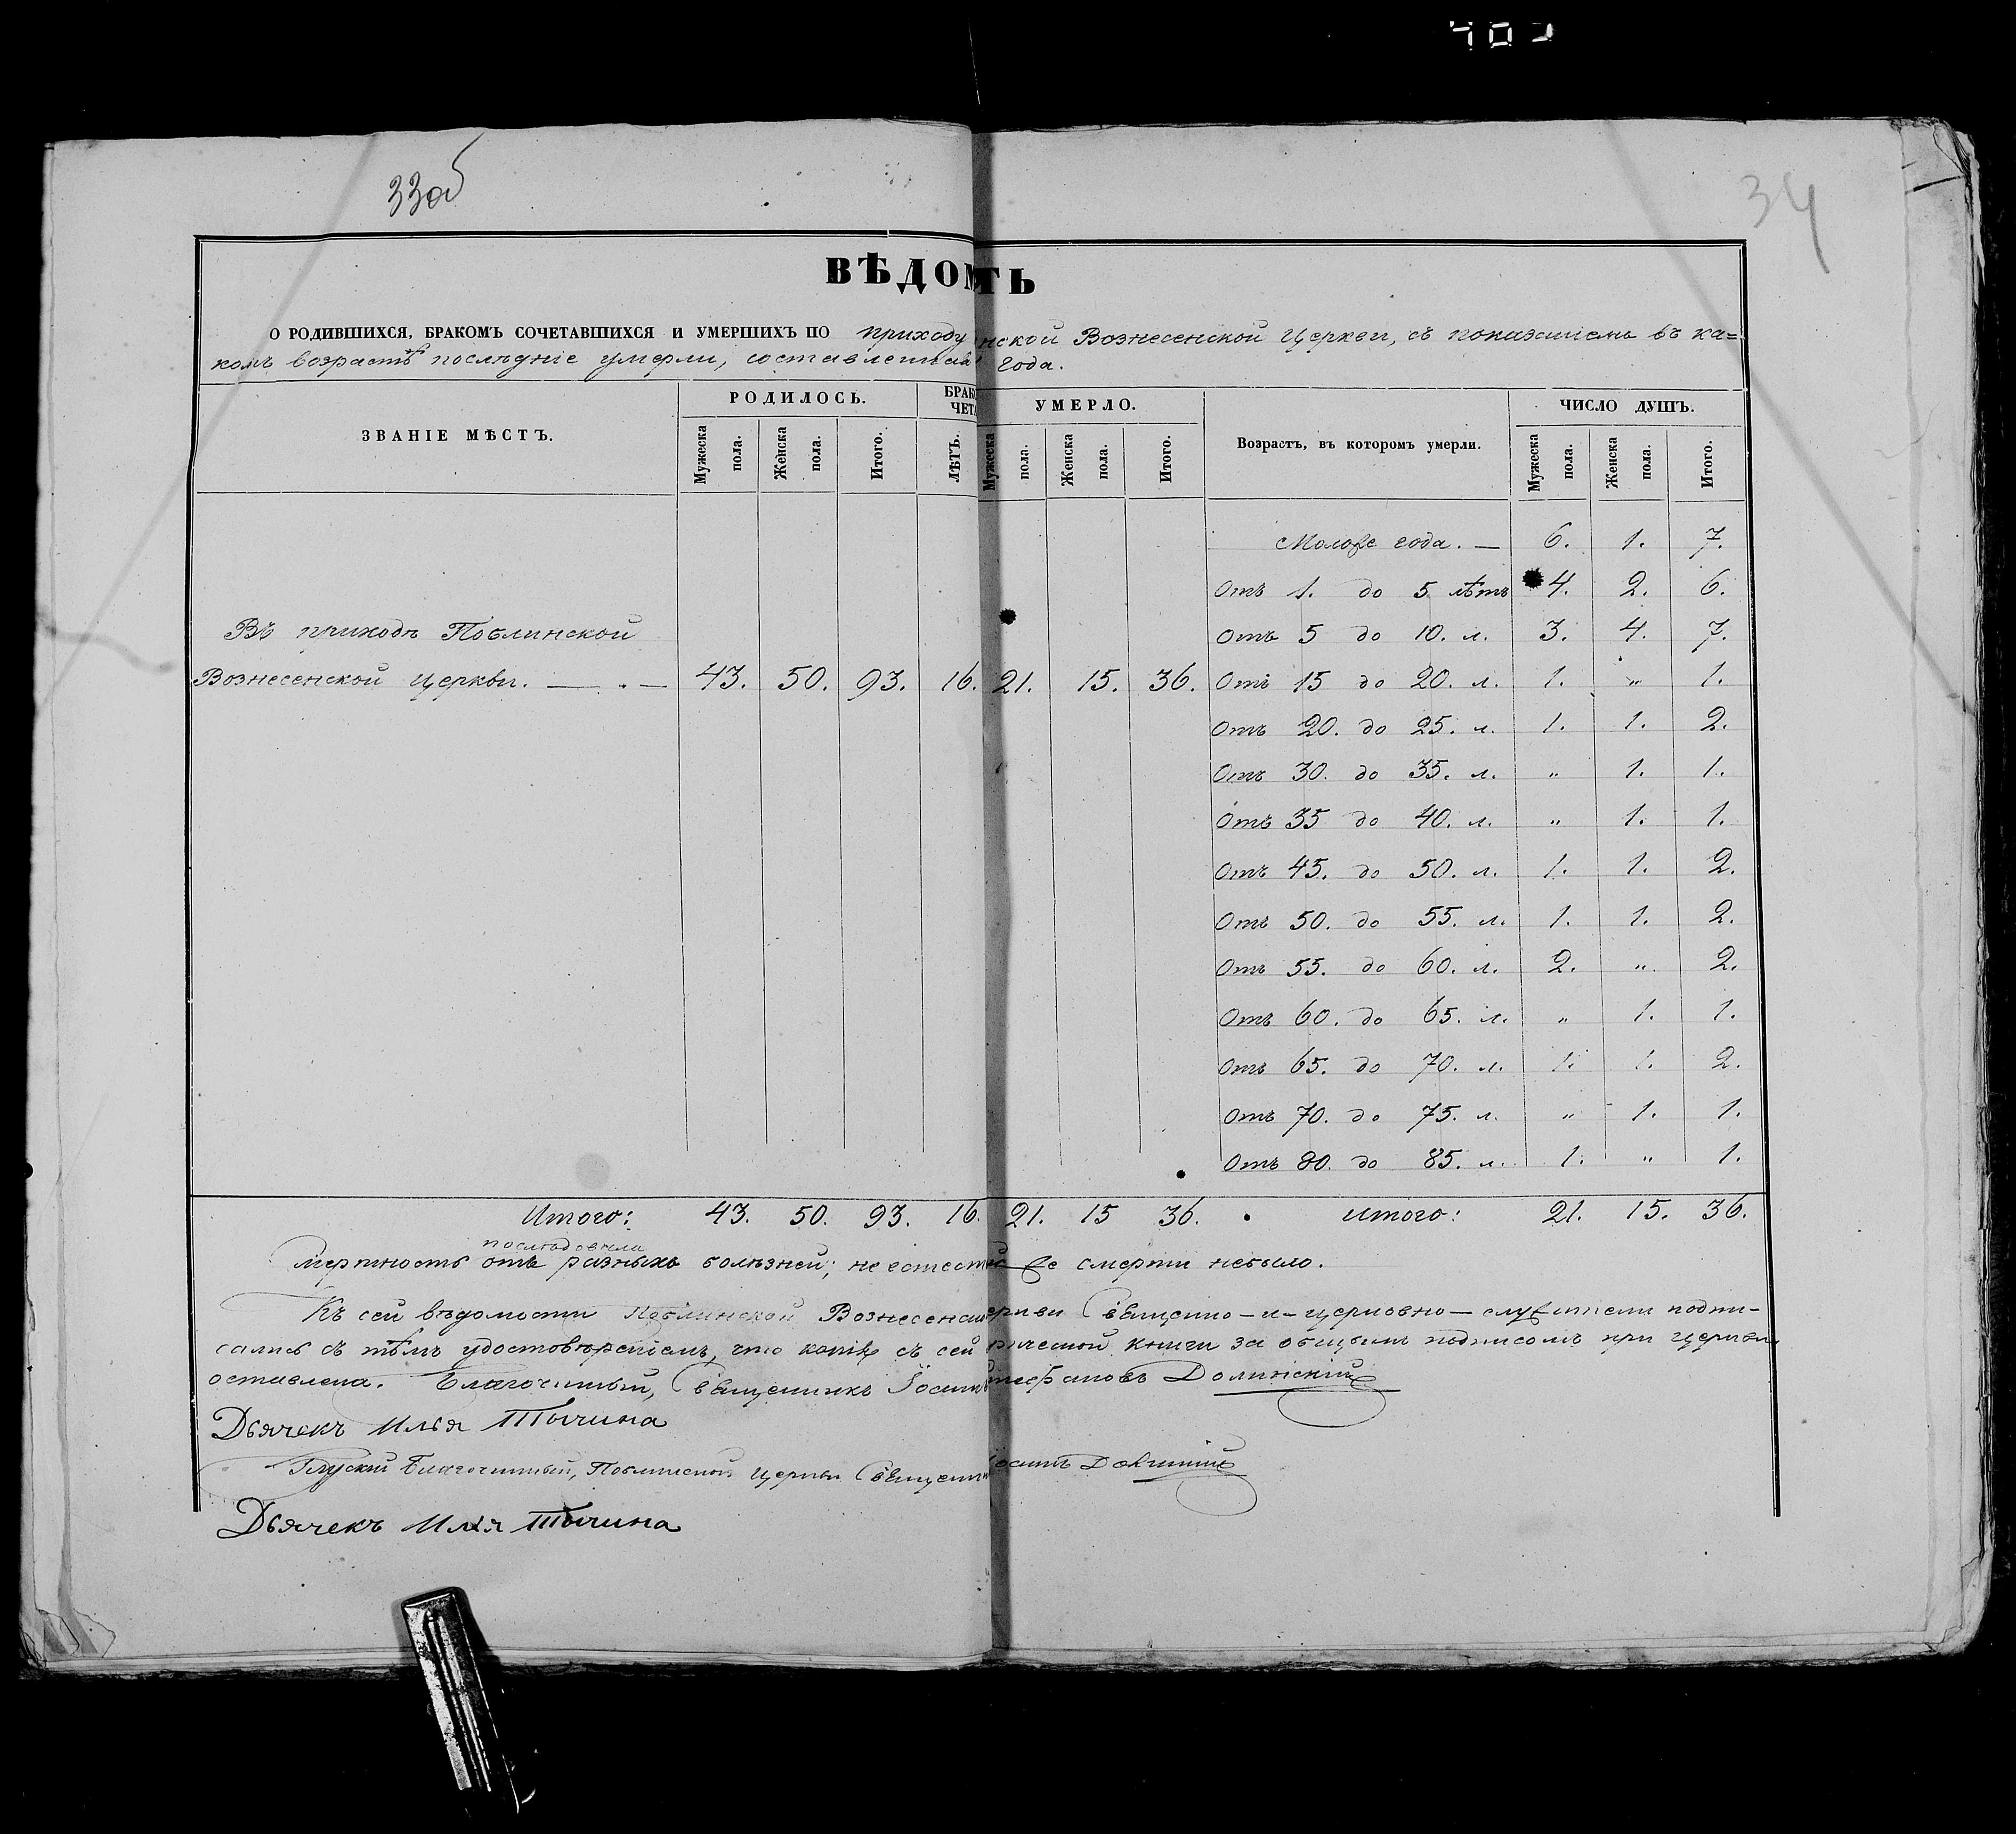 33об
34
ВѢДОМ ТЬ
О РОДИВШИХСЯ, БРАКОМЪ СОЧЕТАВШИХСЯ И УМЕРШИХЪ ПО приходу нской Вознесенской Церкви, съ показаніемъ въ ка=
комъ возрастѣ послѣдніе умерли, составленная года.
ЗВАНІЕ МѢСТЪ. РОДИЛОСЬ. БРАК ЧЕТА УМЕРЛО. Возрастъ, въ которомъ умерли. ЧИСЛО ДУШЪ.
Мужеска пола. Женска пола. Итого. ЛѢТЪ. Мужеска пола. Женска пола. Итого. Мужеска пола. Женска пола. Итого.
Моложе года. — 6. 1. 7.
Отъ 1. до 5 лѣтъ 4. 2. 6.
Въ приходѣ Поблинской
Отъ 5 до 10. л. 3. 4. 7.
Вознесенской церкви. — . — 43. 50. 93. 16. 21. 15. 36. Отъ 15 до 20. л. 1. „ 1.
Отъ 20. до 25. л. 1. 1. 2.
Отъ 30. до 35. л. „ 1. 1.
Отъ 35 до 40. л. „ 1. 1.
Отъ 45. до 50. л. 1. 1. 2.
Отъ 50. до 55. л. 1. 1. 2.
Отъ 55. до 60. л. 2. „ 2.
Отъ 60. до 65. л. „ 1. 1.
Отъ 65. до 70. л. 1. 1. 2.
Отъ 70. до 75. л. „ 1. 1.
Отъ 80. до 85. л. 1. „ 1.
Итого: 43. 50. 93. 16. 21. 15 36. Итого: 21. 15. 36.
послѣдовала
Смертность отъ разныхъ болѣзней; неестест же смерти небыло.
Къ сей вѣдомости Поблинской Вознесенс еркви Священно-и-церковно-служители подпи-
сались съ тѣмъ удостовѣреніемъ, что копія съ сей рической книги за общимъ подписомъ при церкви
оставлена. Благочинный, Священникъ Іосифъ Долинскій
Дьячекъ Илья Тычина
Глускій Благочинный, Поблинской Церкви Священни осифъ Долинскій
Дьячекъ Илья Тычина